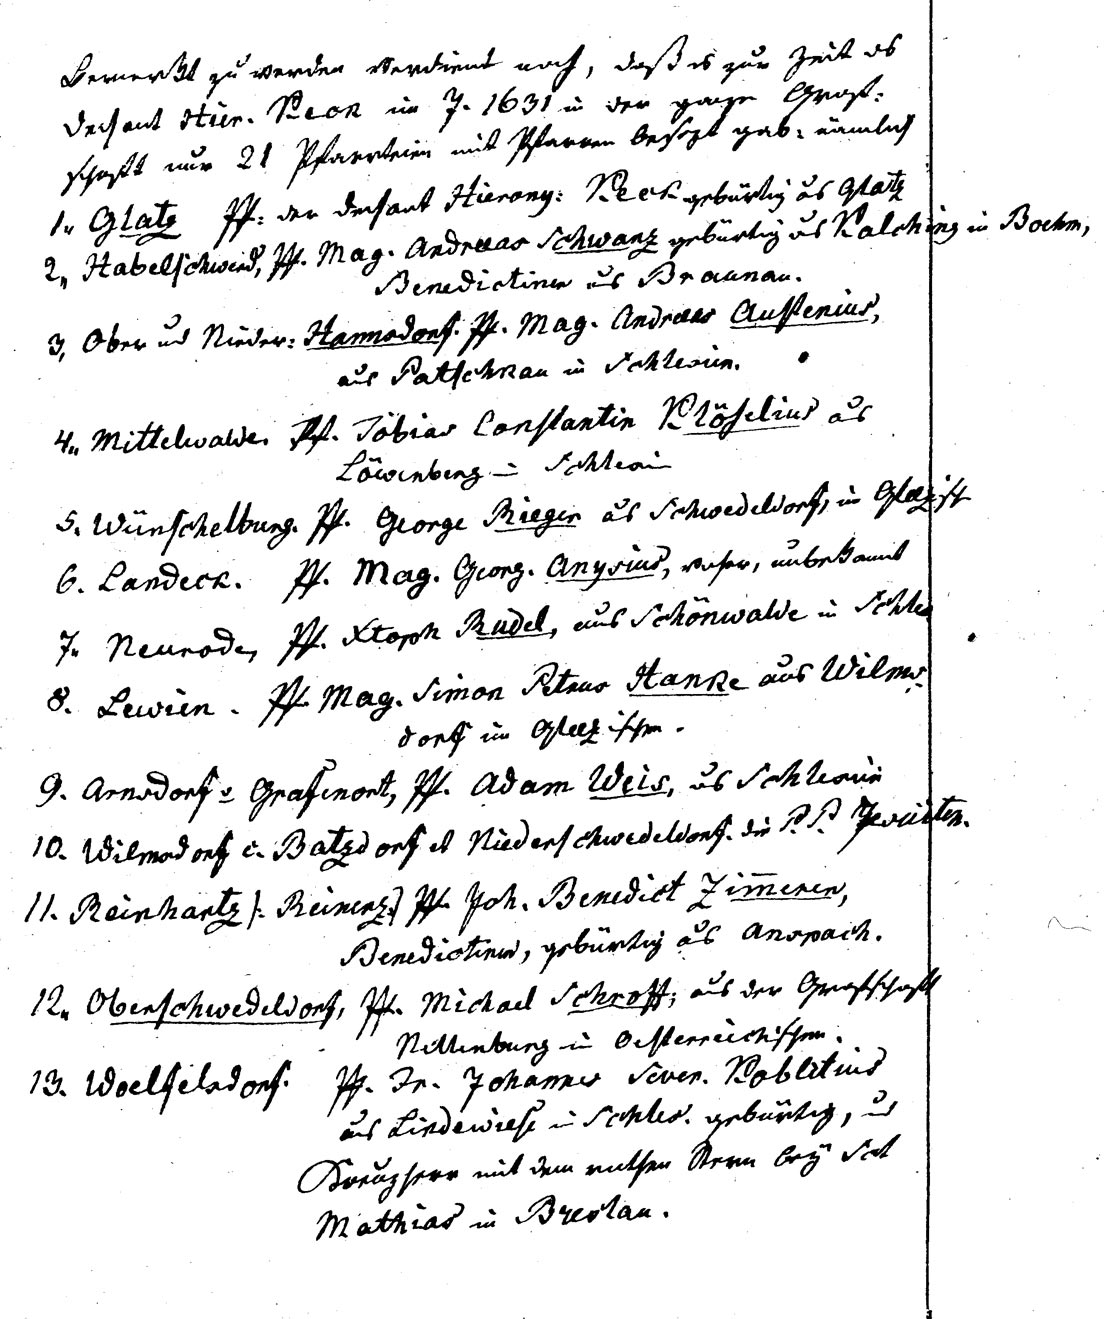 Bemerkt zu werden verdient noch, daß es zur Zeit des
Dechant Hier. Keck im J. 1631 in der ganzen Graf:
schaft nur 21 Pfarrteien mit Pfarren besetzt gab: nämlich
1., Glatz Pf: der Dechant Hierony: Keck gebürtig aus Glatz
2., Habelschwerd, Pf. Mag. Andreas Schwanz gebürtig aus Kalching in Boehm,
Benedictiner aus Braunau.
3, Ober und Nieder: Hannsdorf. Pf. Mag. Andreas Austenius,
aus Patschkau in Schlesien.
4., Mittelwalde. Pf. Tobias Constantin Klöselius aus
Löwenberg in Schlesien
5. Wünschelburg. Pf. George Rieger aus Schwedeldorf, im Glatzisch
6. Landeck. Pf. Mag. Georg. Anysius, woher, unbekannt
7. Neurode, Pf. Xtoph Rudel, aus Schönwalde in Schles
8. Lewien. Pf. Mag. Simon Petrus Hanke aus Wilms:
dorf im Glatzischen.
9. Arnsdorf v Grafenort, Pf. Adam Weis, aus Schlesien
10. Wilmsdorf c. Batzdorf et Niederschwedeldorf. die P.P. Jesuiten.
11. Reinhartz /: Reinerz :/ Pf. Joh. Benedict Zimerer,
Benedictiner, gebürtig aus Anspach.
12., Oberschwedeldorf, Pf. Michael Schroff; aus der Grafschaft
Nellenburg in Oesterreichischen.
13. Woelfelsdorf. Pf. Fr. Johannes Sever. Koblitius
aus Lindewiese in Schles. gebürtig, und
Kreuzherr mit dem rothen Stern bey Sct
Mathias in Breslau.